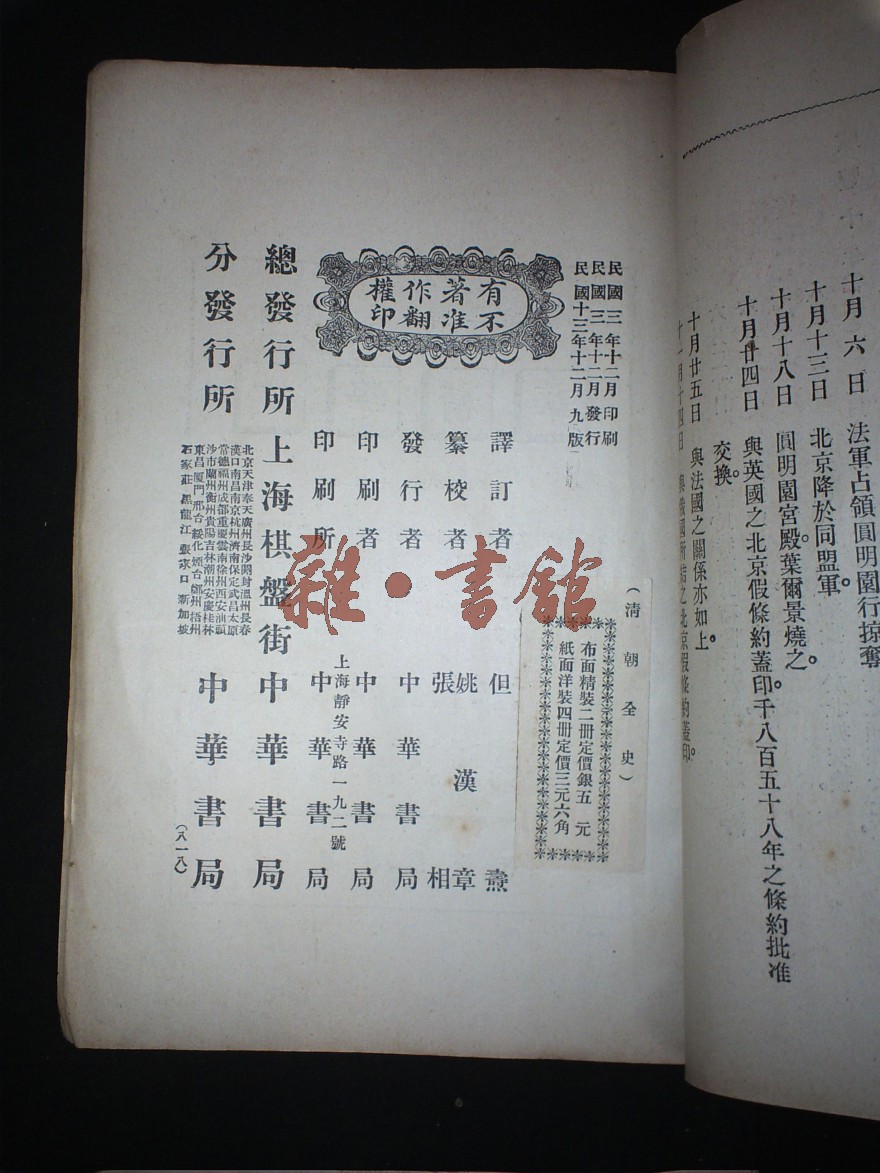 十月六日　法軍占領圓明園行掠奪
十月十三日　北京降於同盟軍。
十月十八日　圓明園宮殿葉爾景燒之。
十月廿四日　與英國之北京假條約蓋印。千八百五十八年之條約批准
交換。
十月廿五日　與法國之關係亦如上。
十一月十四日　與俄國所結之北京假條約蓋印。
民國三年十二月印刷
民國三年十二月發行
民國十三年十二月九版
有著作權
不准翻印
（清朝全史）
布面精裝二册定價銀五元
紙面洋裝四册定價三元六角
譯訂者　但燾
纂校者　姚漢章
張相
發行者　中華書局
印刷者　中華書局
上海靜安寺路一九二號
印刷所　中華書局
總發行所　上海棋盤街中華書局
分發行所　中華書局
北京天津奉天廣州長沙開封溫州長春
漢口南昌南京杭州濟南保定武昌太原
常德福州成都重慶雲南徐州西安汕頭
沙市蘭州衡州貴陽吉林潮州安慶桂林
東昌廈門邢台綏化煙台鄭州梧州
石家莊黑龍江張家口新加坡
（八一八）
雜·書館